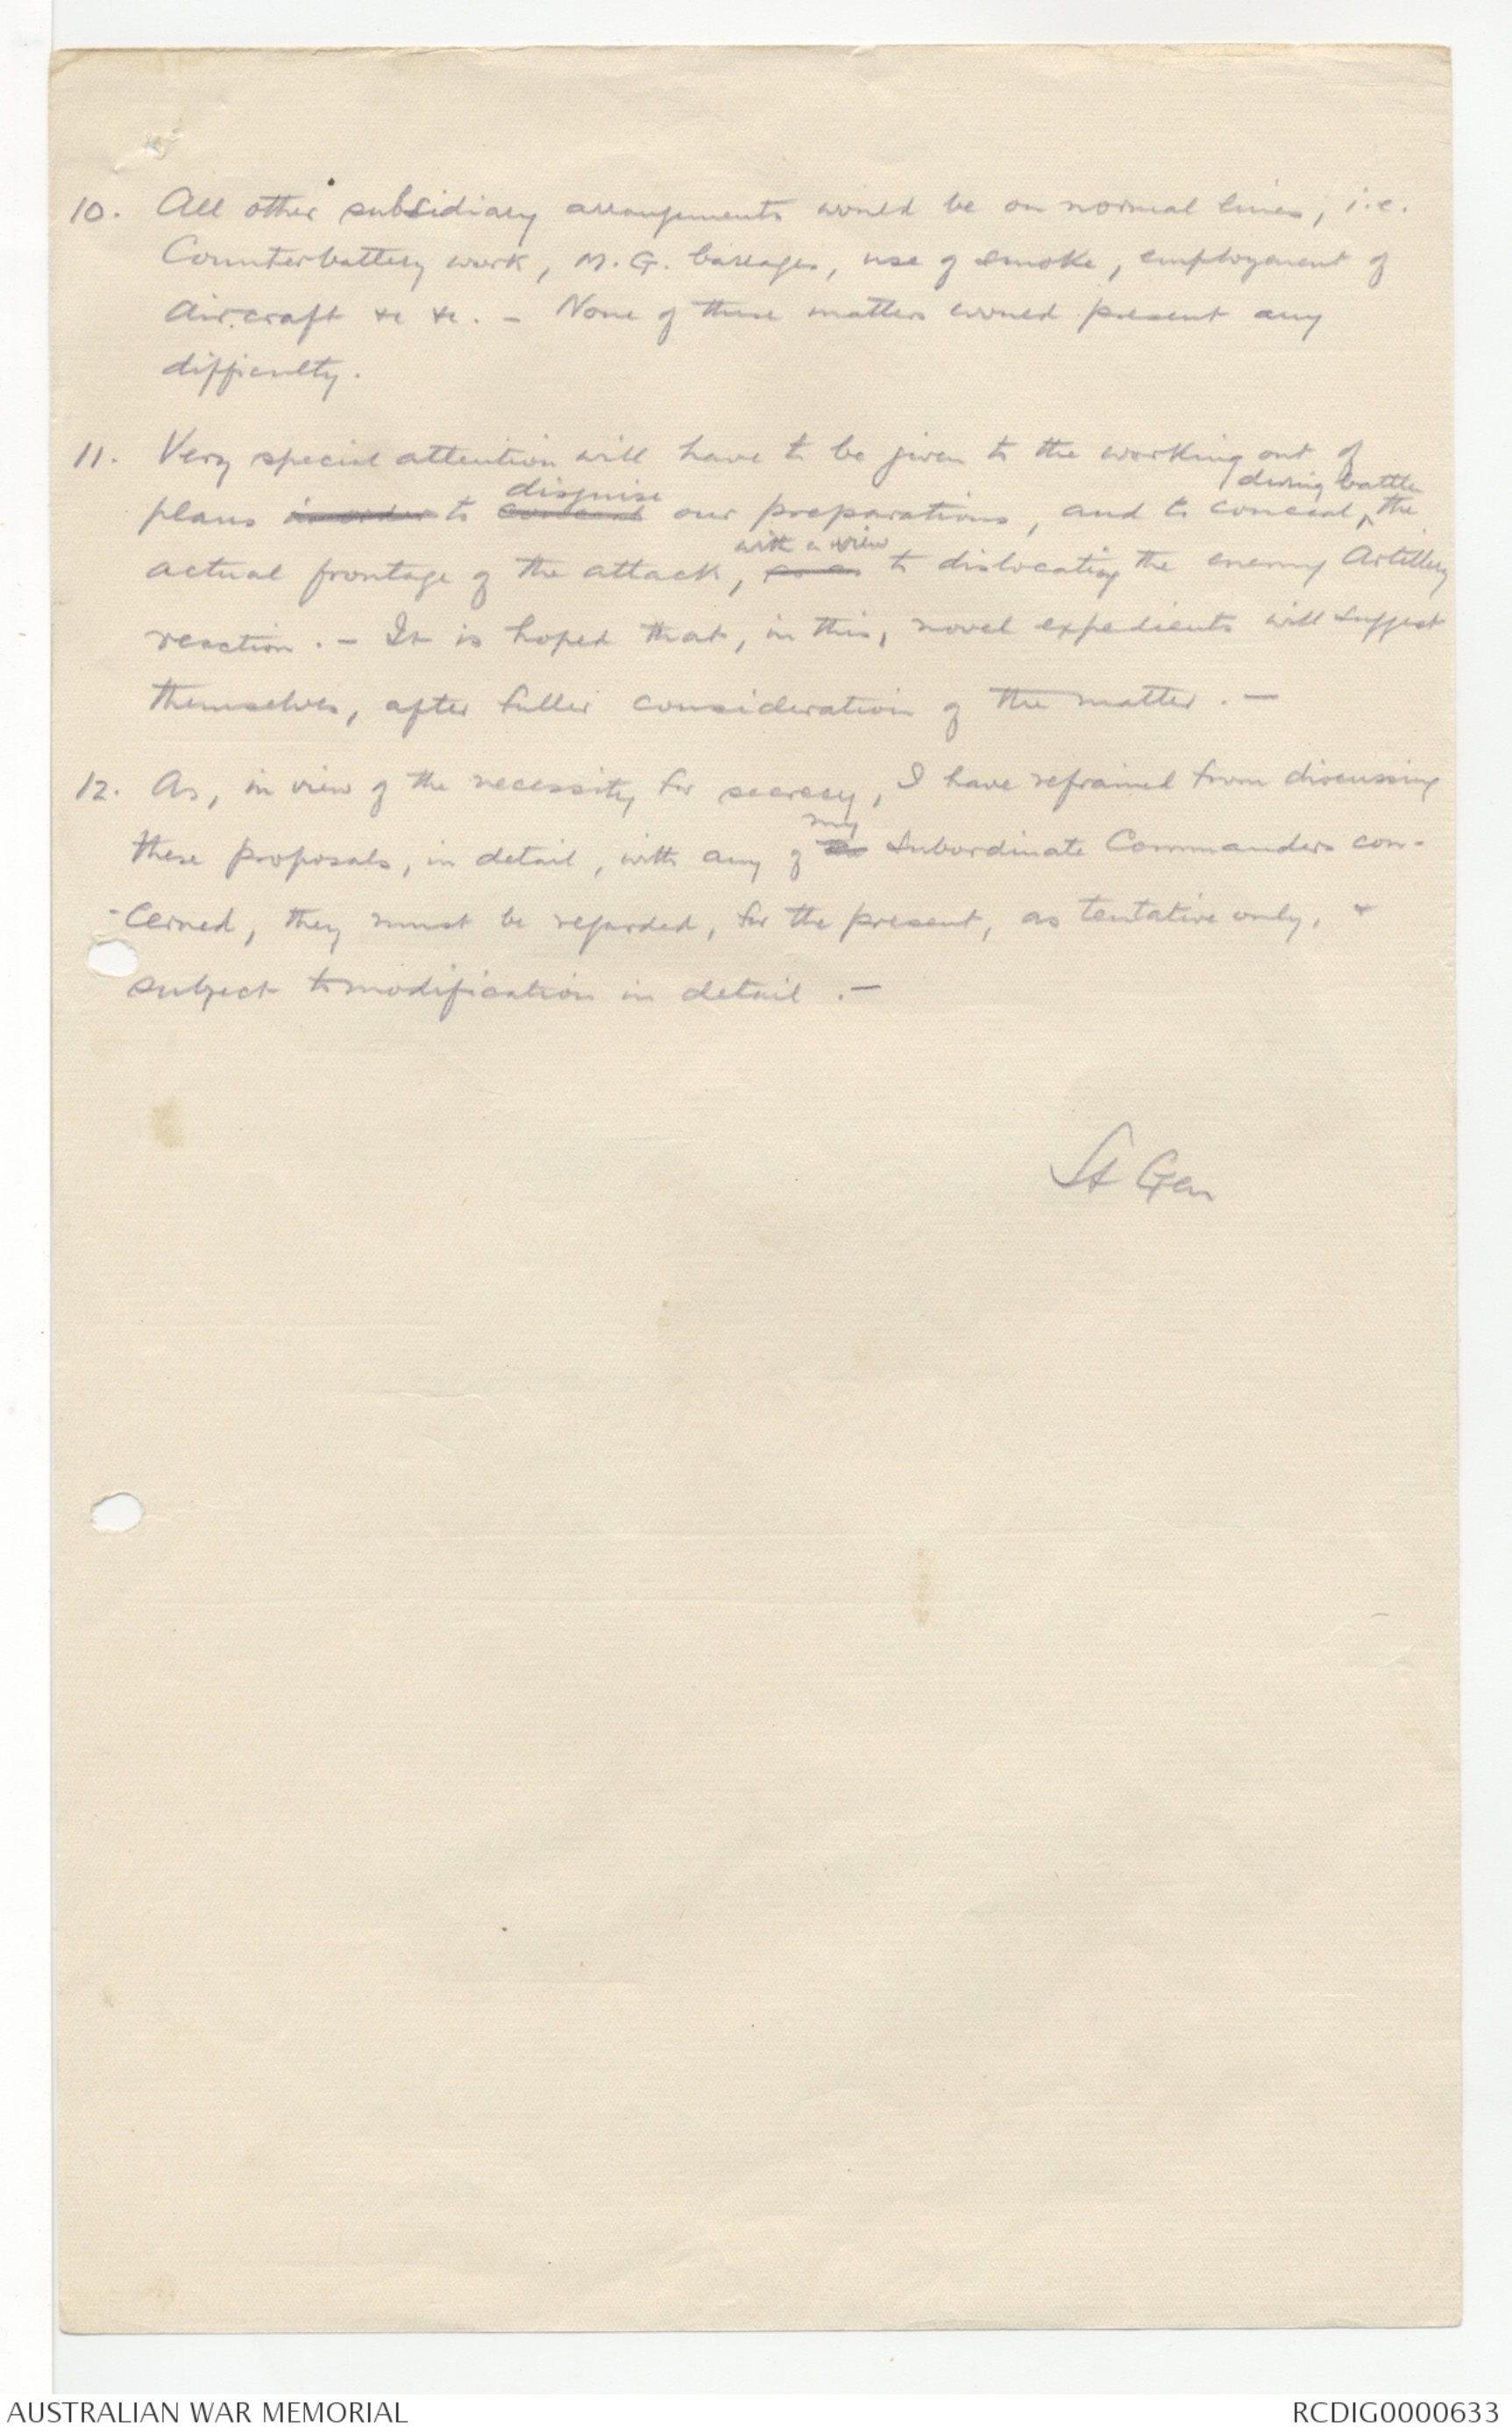 10. All other subsidiary arrangements would be on normal lines, i.e.
Counterbattery work, M.G. barrages, use of smoke, employment of
Aircraft &c &c. - None of these matters would present any
difficulty.
11. Very special attention will have to be given to the working out of
plans in order to conceal disguise our preparations, and to conceal, during battle the
actual frontage of the attack, so as with a view to dislocating the enemy Artillery
reaction. - It is hoped that, in this, novel expedients will suggest
themselves, after fuller consideration of the matter. -
12. As, in view of the necessity for secrecy, I have refrained from discussing
these proposals, in detail, with any of my Subordinate Commanders con-
-cerned, they must be regarded, for the present, as tentative only, &
subject to modification in detail. -
Lt Gen
AUSTRALIAN WAR MEMORIAL
RCDIG0000633